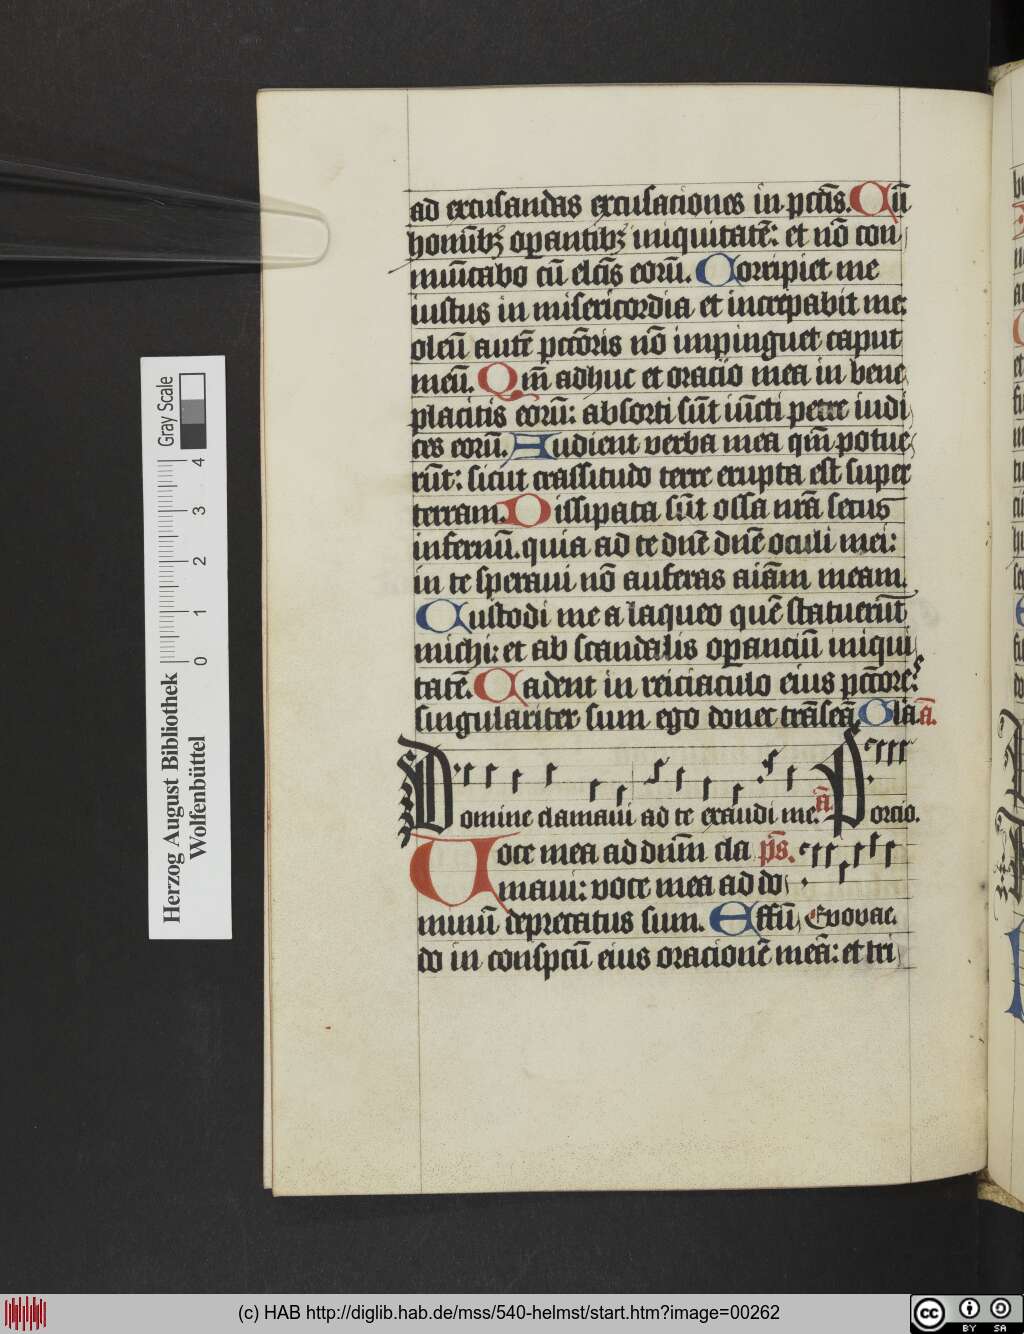 ad excusandas excusaciones in pctīs. Cū
hoīnībꝫ opantibꝫ iniquitatē: et nō con
muīcabo cū elcīs eorū. Corripiet me
iustus in misericordia et increpabit me:
oleū autē pctōris nō impinguet caput
meū. Qm̄ adhuc et oracio mea in bene
placitis eorū: absorti sūt iūcti petre iudi
ces eorū. Audient verba mea qm̄ potue
rūt: sicut crassitudo terre erupta est super
terram. Dissipata sūt ossa nrā secus
infernū. quia ad te dnē dnē oculi mei:
in te speraui nō auferas aīam meam.
Custodi me a laqueo quē statuerūt
michi: et ab scandalis opanciū iniqui
tatē. Cadent in reiciaculo eius pctōres:
singulariter sum ego donec trāseā. Glā. ā.
Domine clamaui ad te exaudi me. ā Porcio.
Uoce mea ad dnm̄ cla p̄s.
maui: voce mea ad do
minū deprecatus sum. Effū Euouae.
do in conspcū eius oracionē meā: et tri
Herzog August Bibliothek
Wolfenbüttel
Gray Scale
0 1 2 3 4
(c) HAB http://diglib.hab.de/mss/540-helmst/start.htm?image=00262
cc BY SA